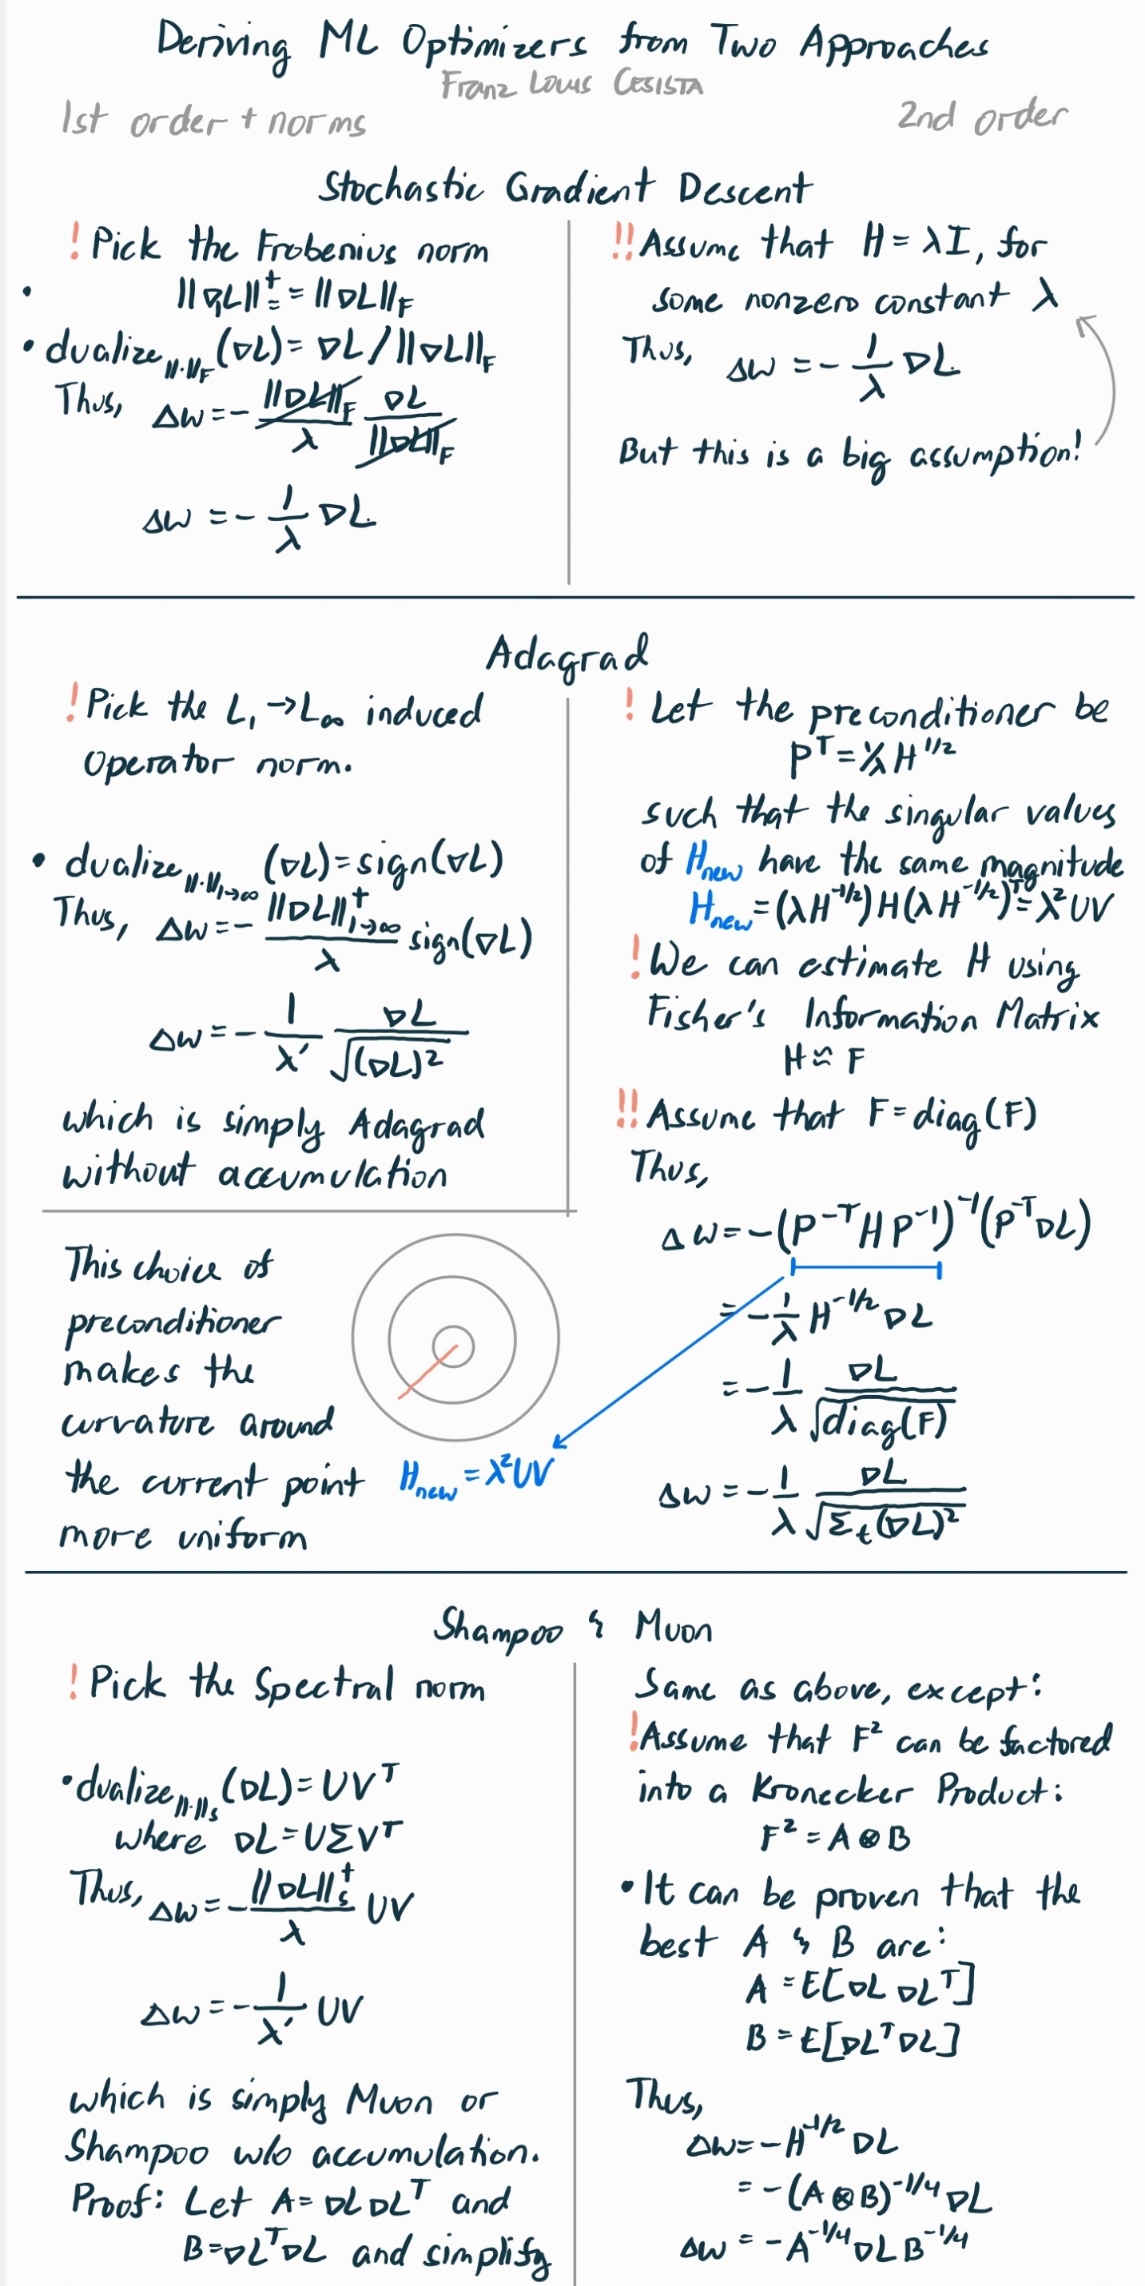 Deriving ML Optimizers from Two Approaches
Franz Louis CESISTA
1st order + norms
2nd order
Stochastic Gradient Descent
! Pick the Frobenius norm
• ||∇L||^† = ||∇L||_F
• dualize_||·||_F (∇L) = ∇L / ||∇L||_F
Thus, ΔW = - ||∇L||_F / λ ∇L / ||∇L||_F
ΔW = - 1/λ ∇L
!! Assume that H = λI, for
some nonzero constant λ
Thus, ΔW = - 1/λ ∇L
But this is a big assumption!
Adagrad
! Pick the L₁ → L∞ induced
Operator norm.
• dualize_||·||_1→∞ (∇L) = sign(∇L)
Thus, ΔW = - ||∇L||^†_1→∞ / λ sign(∇L)
ΔW = - 1/λ' ∇L / √(∇L)²
which is simply Adagrad
without accumulation
This choice of
preconditioner
makes the
curvature around
the current point
more uniform
H_new = λ²UV
! Let the preconditioner be
P^T = 1/λ H^1/2
such that the singular values
of H_new have the same magnitude
H_new = (λH^-1/2) H (λH^-1/2)^T = λ²UV
! We can estimate H using
Fisher's Information Matrix
H ≈ F
!! Assume that F = diag(F)
Thus,
ΔW = -(P^-T H P^-1)^-1 (P^-T ∇L)
= - 1/λ H^-1/2 ∇L
= - 1/λ ∇L / √diag(F)
ΔW = - 1/λ ∇L / √Σ_t(∇L)²
Shampoo & Muon
! Pick the Spectral norm
• dualize_||·||_s (∇L) = UV^T
where ∇L = UΣV^T
Thus, ΔW = - ||∇L||^†_s / λ UV
ΔW = - 1/λ' UV
which is simply Muon or
Shampoo w/o accumulation.
Proof: Let A = ∇L∇L^T and
B = ∇L^T∇L and simplify
Same as above, except:
! Assume that F² can be factored
into a Kronecker Product:
F² = A ⊗ B
• It can be proven that the
best A & B are:
A = E[∇L ∇L^T]
B = E[∇L^T ∇L]
Thus,
ΔW = -H^-1/2 ∇L
= -(A ⊗ B)^-1/4 ∇L
ΔW = -A^-1/4 ∇L B^-1/4